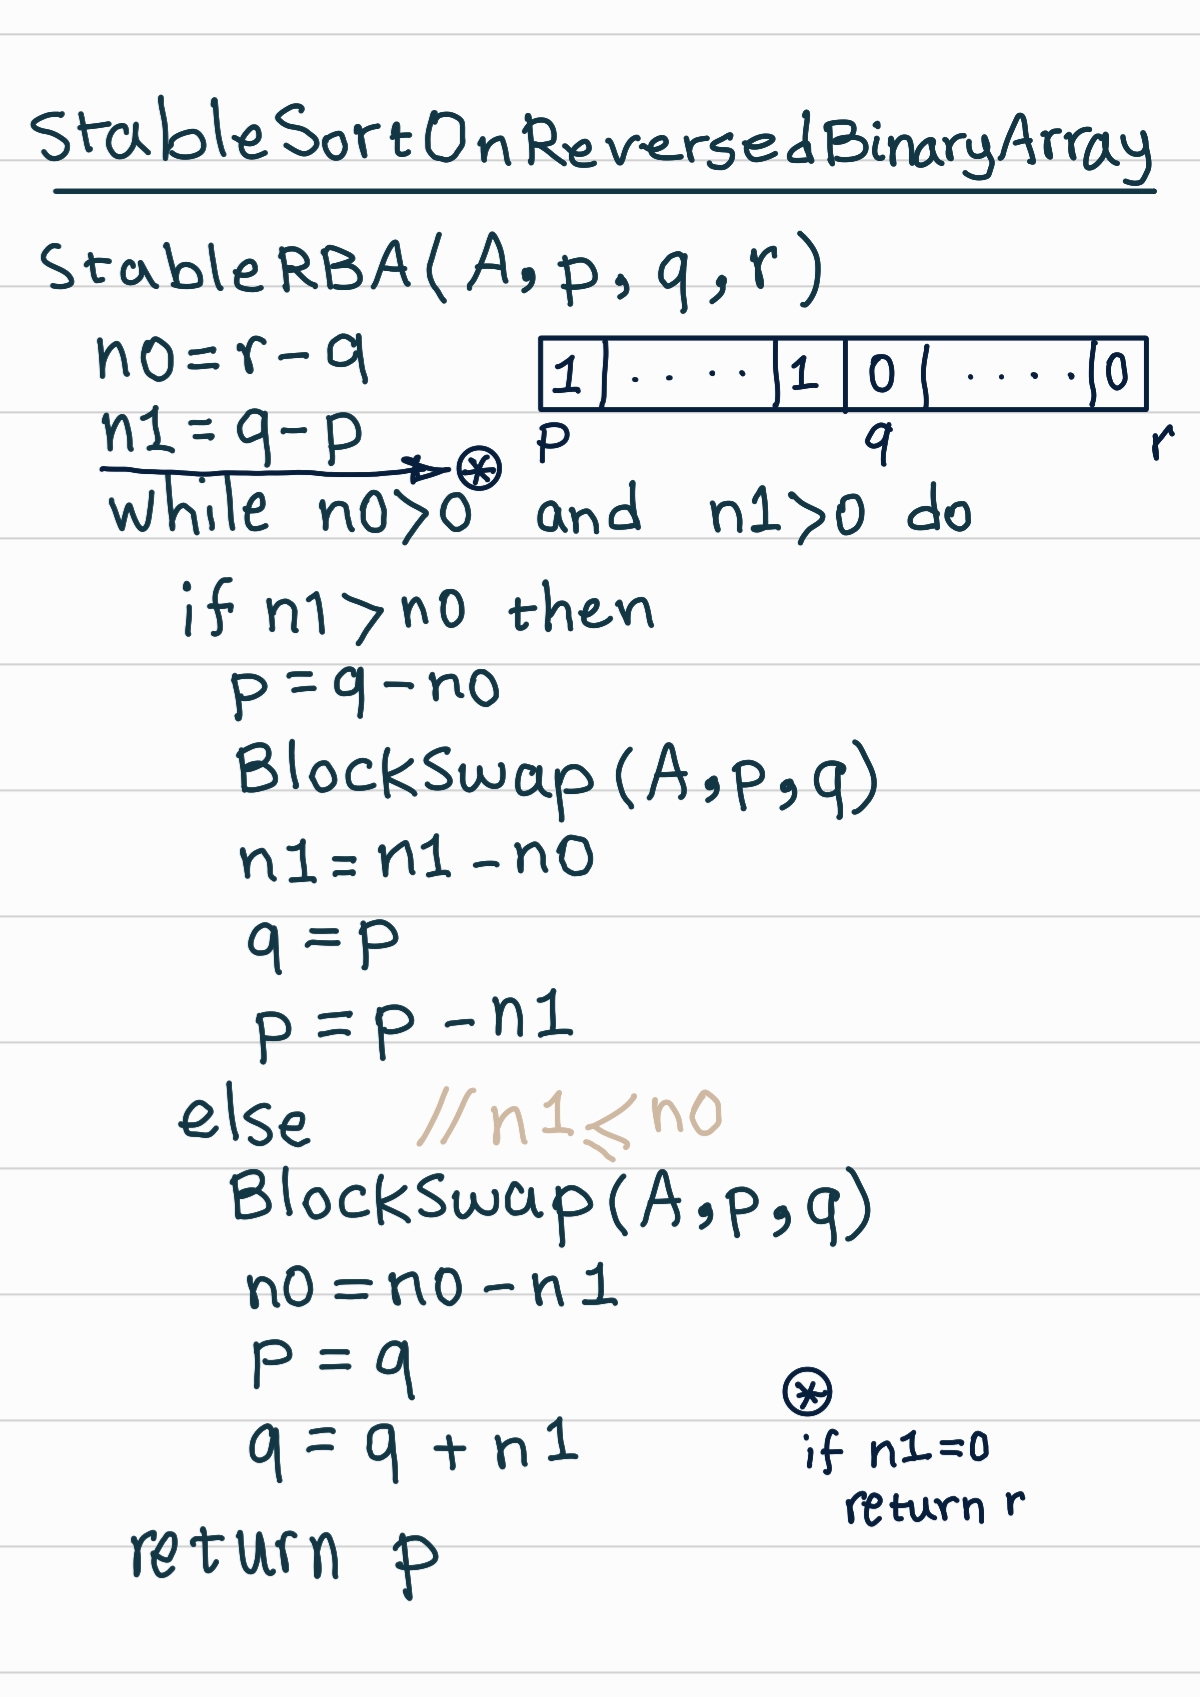 StableSortOnReversedBinaryArray
StableRBA(A, p, q, r)
n0 = r - q
1 . . . . 1 0 . . . . 0
n1 = q - p
p q r
⊛
while n0 > 0 and n1 > 0 do
if n1 > n0 then
p = q - n0
BlockSwap(A, p, q)
n1 = n1 - n0
q = p
p = p - n1
else // n1 ≤ n0
BlockSwap(A, p, q)
n0 = n0 - n1
p = q
q = q + n1
⊛
if n1 = 0
return r
return p